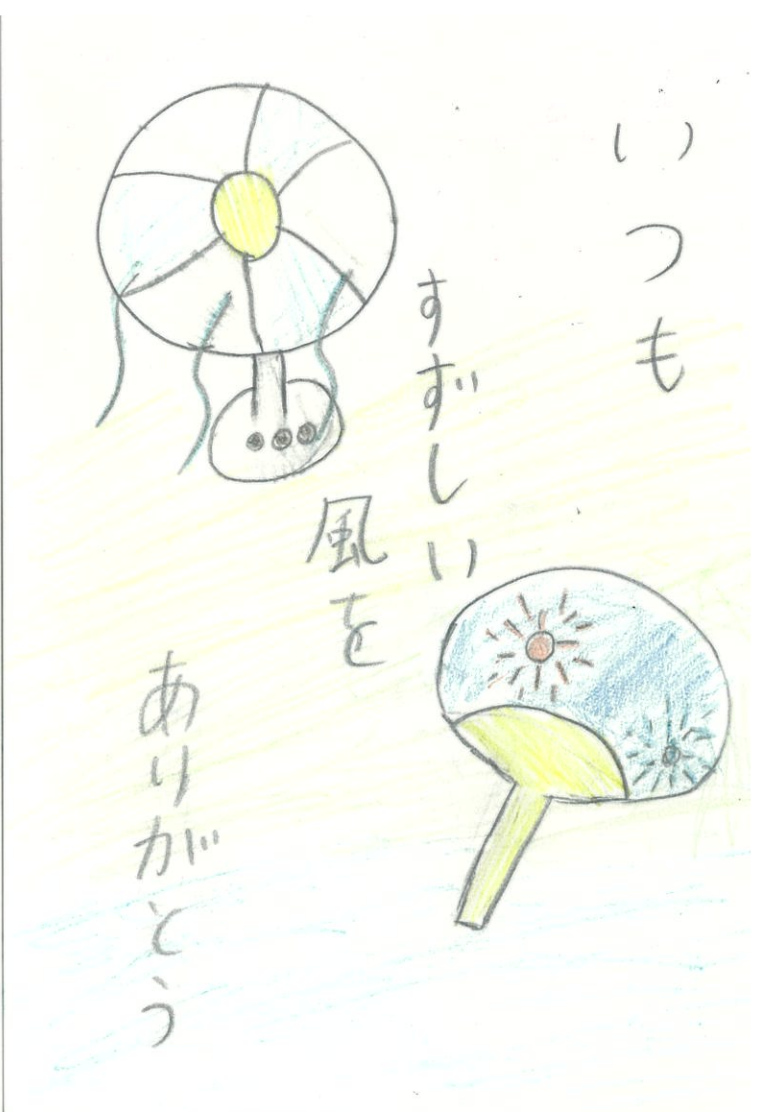 いつも
すずしい
風を
ありがとう